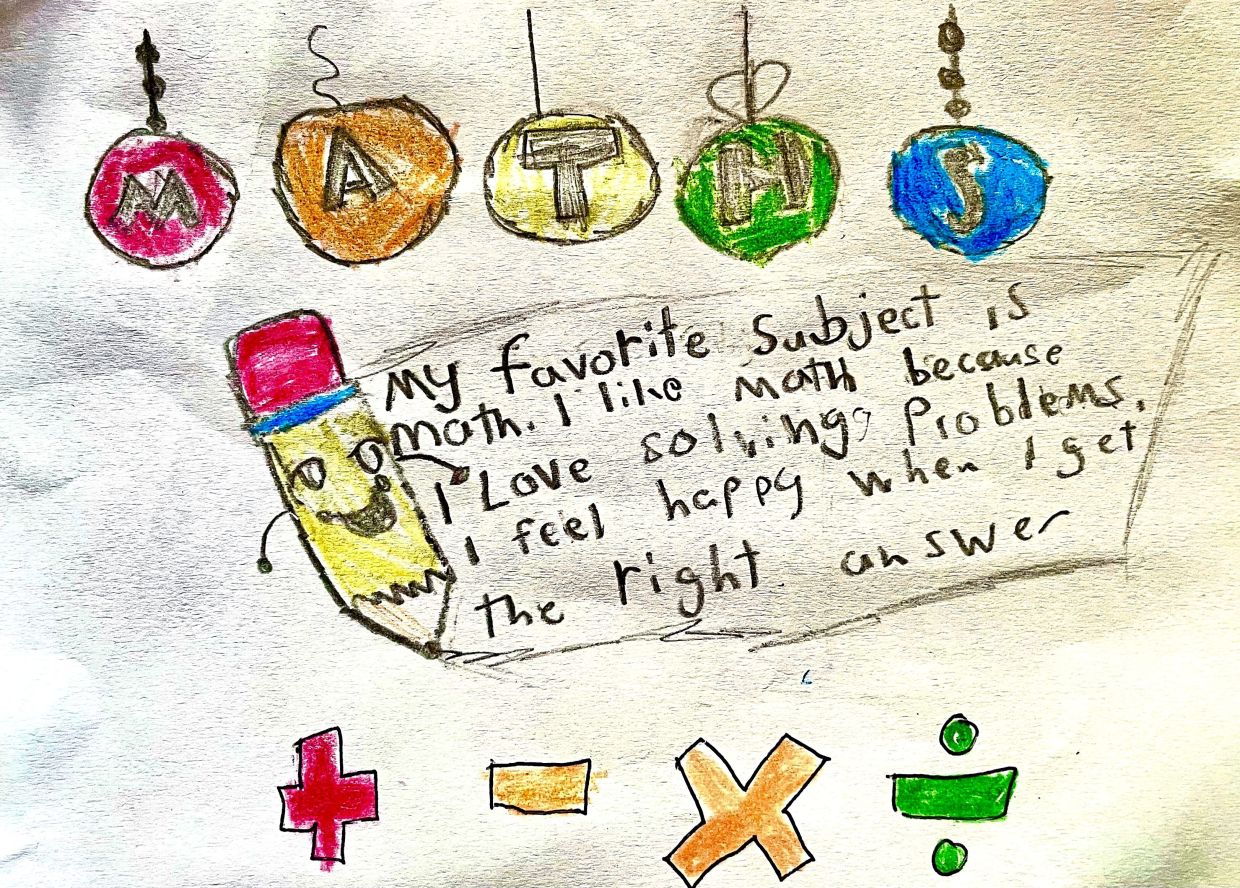 MATHS
My favorite Subject is
math. I like math because
I Love solving Problems.
I feel happy when I get
the right answer
+ - × ÷